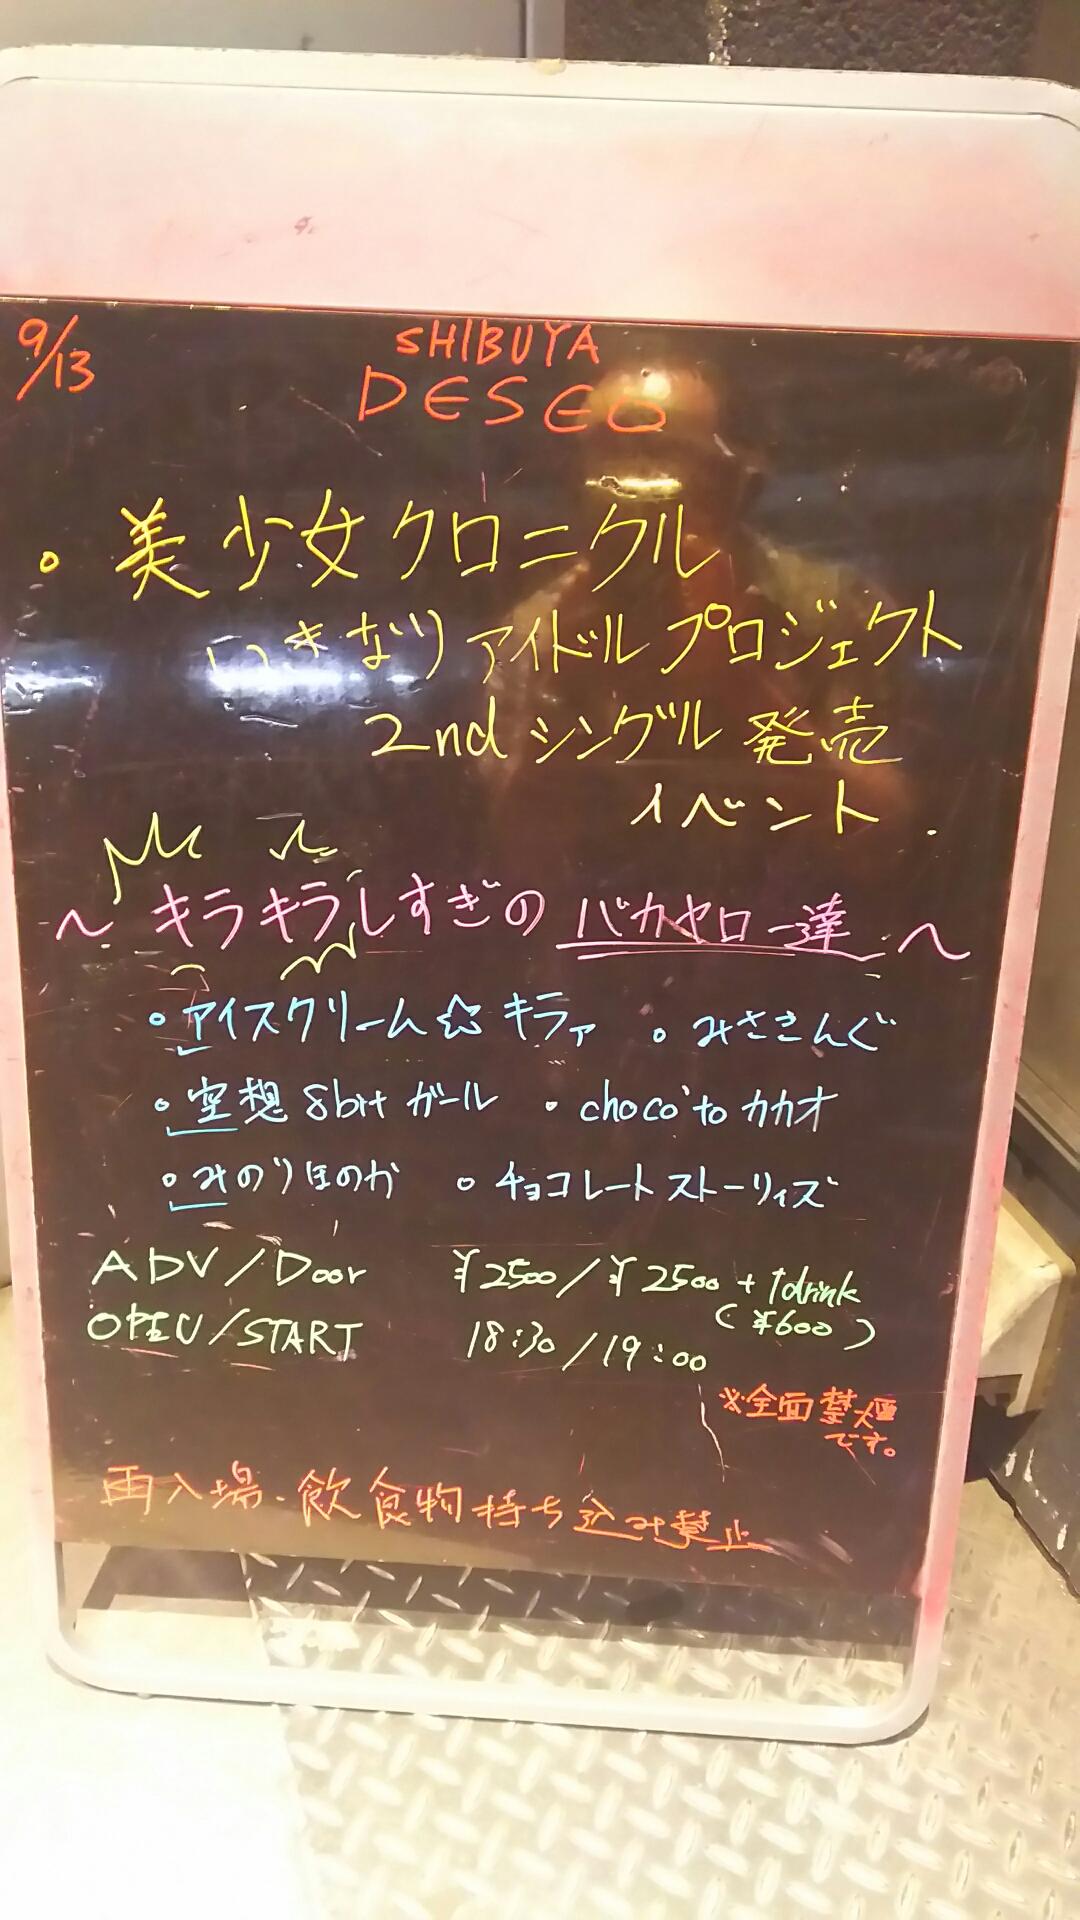 9/13
SHIBUYA
DESEO
・美少女クロニクル
いきなりアイドルプロジェクト
2ndシングル発売
イベント
〜キラキラしすぎのバカヤロー達〜
・アイスクリーム☆キラァ ・みさきんぐ
・空想8bitガール ・choco'toカカオ
・みのりほのか ・チョコレートストーリィズ
ADV/Door ¥2500/¥2500+1drink
(¥600)
OPEN/START 18:30/19:00
※全面禁煙
です。
再入場・飲食物持ち込み禁止